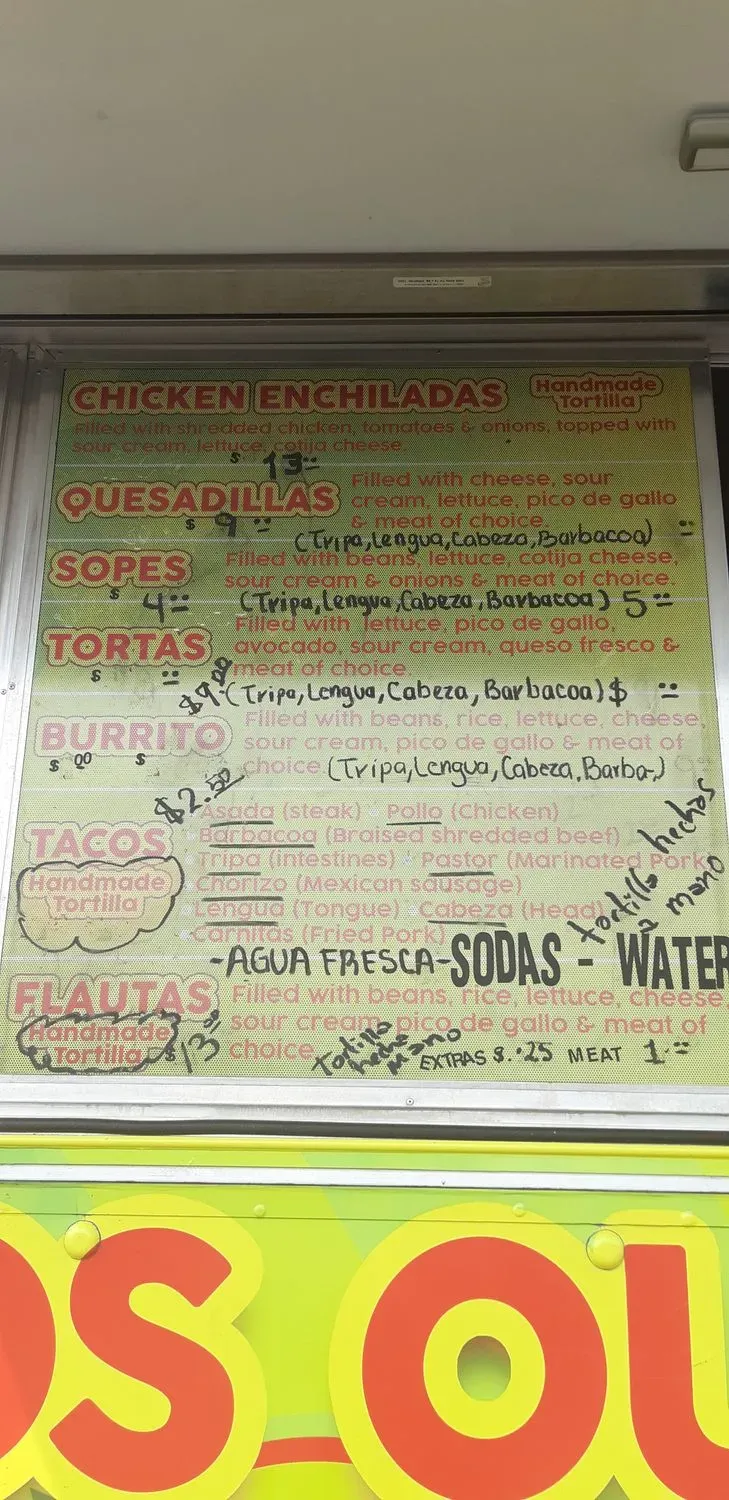 CHICKEN ENCHILADAS
Handmade
Tortilla
Filled with shredded chicken, tomatoes & onions, topped with
sour cream, lettuce, cotija cheese.
$ 13
QUESADILLAS
$ 9
Filled with cheese, sour
cream, lettuce, pico de gallo
& meat of choice.
(Tripa, Lengua, Cabeza, Barbacoa)
SOPES
$ 4
Filled with beans, lettuce, cotija cheese,
sour cream & onions & meat of choice.
(Tripa, Lengua, Cabeza, Barbacoa) 5
TORTAS
$
Filled with lettuce, pico de gallo,
avocado, sour cream, queso fresco &
meat of choice
$9.00 (Tripa, Lengua, Cabeza, Barbacoa) $
BURRITO
$ 00 $
Filled with beans, rice, lettuce, cheese,
sour cream, pico de gallo & meat of
choice (Tripa, Lengua, Cabeza, Barba-)
$2.50
TACOS
Handmade
Tortilla
Asada (steak) Pollo (Chicken)
Barbacoa (Braised shredded beef)
Tripa (intestines) Pastor (Marinated Pork
Chorizo (Mexican sausage)
Lengua (Tongue) Cabeza (Head)
Carnitas (Fried Pork)
tortilla hechas
a mano
-AGUA FRESCA-SODAS - WATER
FLAUTAS
Handmade
Tortilla
$13.00
Filled with beans, rice, lettuce, cheese,
sour cream, pico de gallo & meat of
choice
tortilla
hecha
mano
EXTRAS $..25 MEAT 1
OS OU